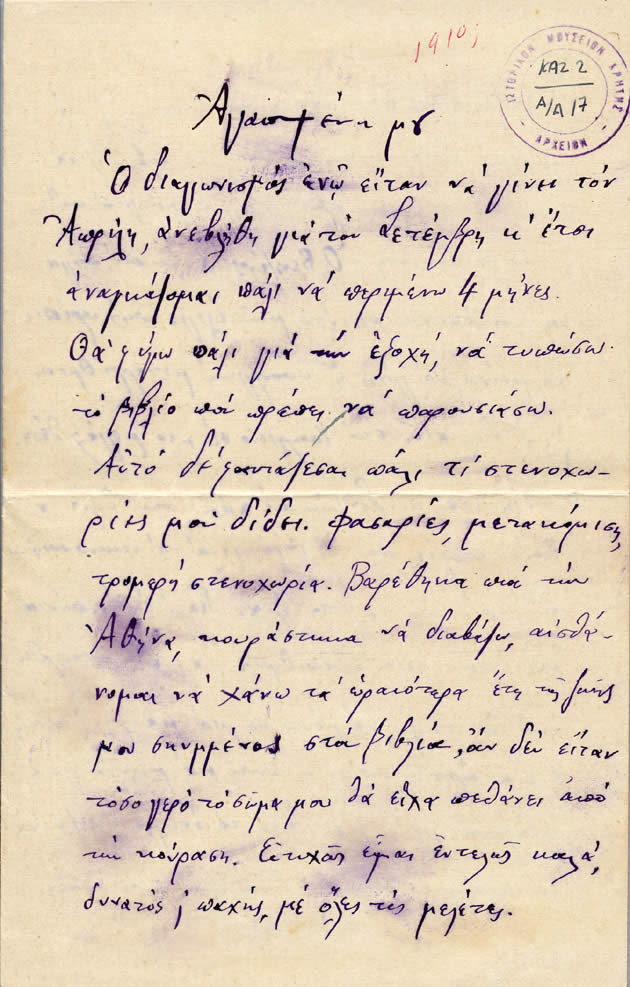 1910;
ΙΣΤΟΡΙΚΟΝ ΜΟΥΣΕΙΟΝ ΚΡΗΤΗΣ
ΚΑΖ 2
Α/Α 17
ΑΡΧΕΙΟΝ
Ἀγαπημένη μου
Ὁ διαγωνισμὸς ἐνῶ εἶταν νὰ γίνει τὸν
Ἀπρίλη, ἀνεβλήθη γιὰ τὸν Σετέμβρη κ' ἔτσι
ἀναγκάζομαι πάλι νὰ περιμένω 4 μῆνες.
Θὰ φύγω πάλι γιὰ τὴν ἐξοχή, νὰ τυπώσω
τὸ βιβλίο ποὺ πρέπει νὰ παρουσιάσω.
Αὐτὸ δὲ φαντάζεσαι πάλι τί στενοχω-
ρίες μοῦ δίδει. Φασαρίες, μετακόμιση,
τρομερὴ στενοχωρία. Βαρέθηκα πιὰ τὴν
Ἀθήνα, κουράστηκα νὰ διαβάζω, αἰσθά-
νομαι νὰ χάνω τὰ ὡραιότερα ἔτη τῆς ζωῆς
μου σκυμμένος στὰ βιβλία, ἂν δὲν εἶταν
τόσο γερὸ τὸ σῶμα μου θὰ εἶχα πεθάνει ἀπὸ
τὴν κούραση. Εὐτυχῶς εἶμαι ἐντελῶς καλά,
δυνατὸς, παχὺς, μὲ ὅλες τὶς μελέτες.